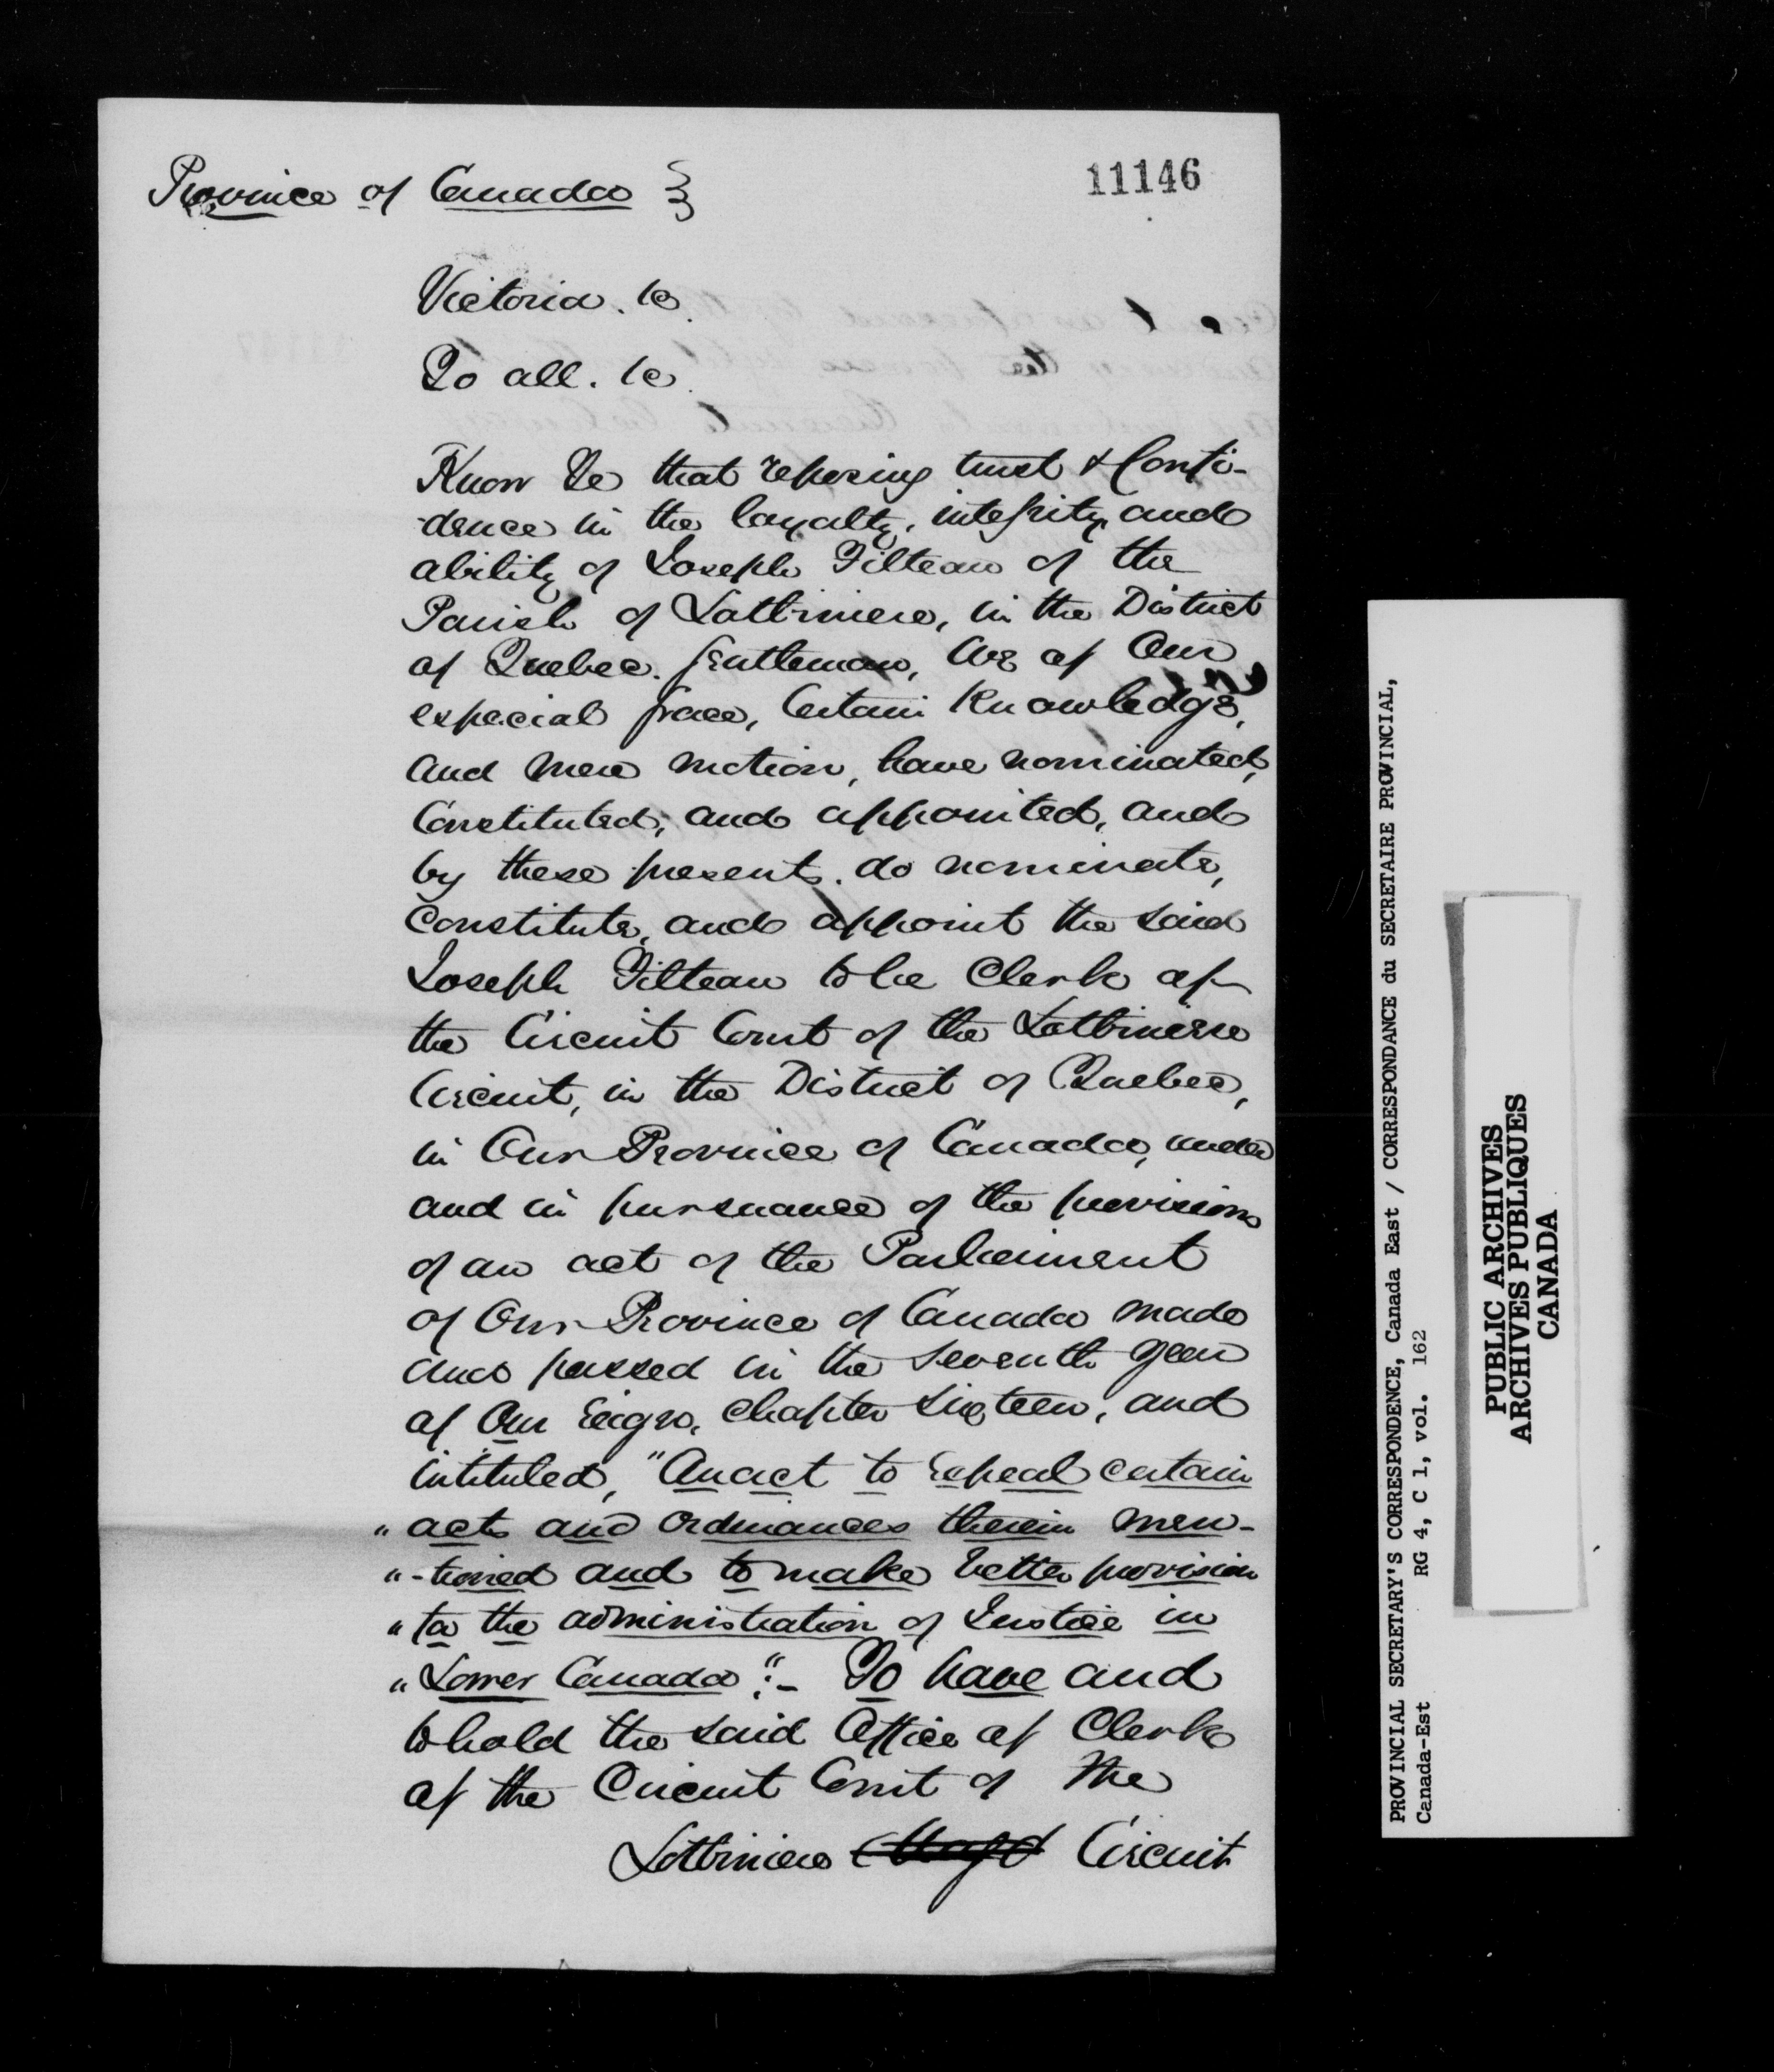 Province of Canada }
11146
Victoria. &c.
To all. &c.
Know Ye that reposing trust & Confi-
-dence in the loyalty, integrity and
ability of Joseph Filteau of the
Parish of Lotbiniere, in the District
of Quebec. Gentleman, We of Our
especial grace, Certain Knowledge,
and mere motion, have nominated,
Constituted, and appointed, and
by these presents. do nominate,
Constitute, and appoint the said
Joseph Filteau to be Clerk of
the Circuit Court of the Lotbiniere
Circuit, in the District of Quebec,
in Our Province of Canada, under
and in pursuance of the provisions
of an act of the Parliament
of Our Province of Canada made
and passed in the Seventh year
of Our Reign, Chapter Sixteen, and
intituled, "An act to repeal certain
" acts and ordinances therein men-
" -tioned and to make better provision
" for the administration of Justice in
" Lower Canada":- To have and
to hold the said Office of Clerk
of the Circuit Court of the
Lotbiniere Circuit
PROVINCIAL SECRETARY'S CORRESPONDENCE, Canada East / CORRESPONDANCE du SECRETAIRE PROVINCIAL,
Canada-Est RG 4, C 1, vol. 162
PUBLIC ARCHIVES
ARCHIVES PUBLIQUES
CANADA